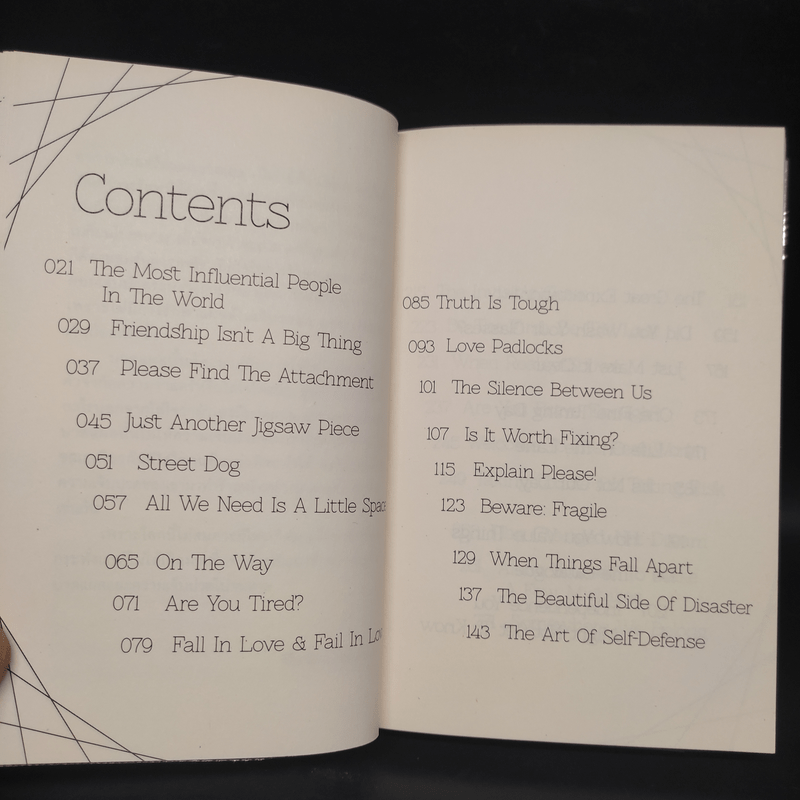 Contents
021 The Most Influential People
In The World
029 Friendship Isn't A Big Thing
037 Please Find The Attachment
045 Just Another Jigsaw Piece
051 Street Dog
057 All We Need Is A Little Space
065 On The Way
071 Are You Tired?
079 Fall In Love & Fail In
085 Truth Is Tough
093 Love Padlocks
101 The Silence Between Us
107 Is It Worth Fixing?
115 Explain Please!
123 Beware: Fragile
129 When Things Fall Apart
137 The Beautiful Side Of Disaster
143 The Art Of Self-Defense